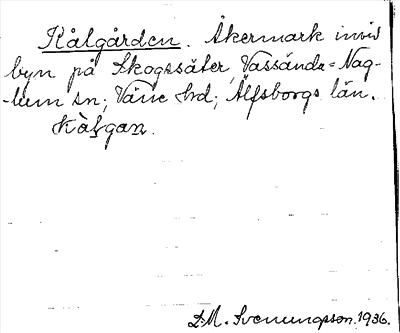 Kålgården. Åkermark invid
byn på Skogssäter, Vassända-Nag-
lum sn; Väne hd; Älfsborgs län.
Kàlgan.
D.M. Svenungsson. 1936.